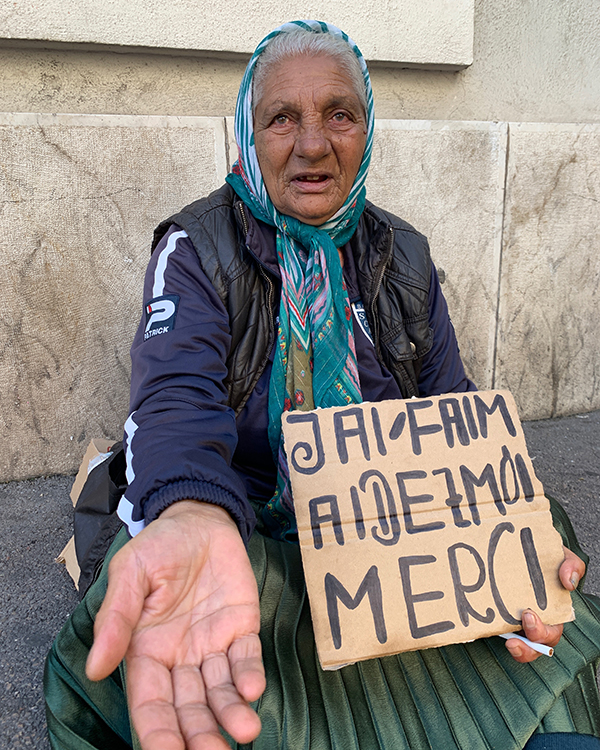 JAI'FAIM
AIDEZMOI
MERCI
P
PATRICK